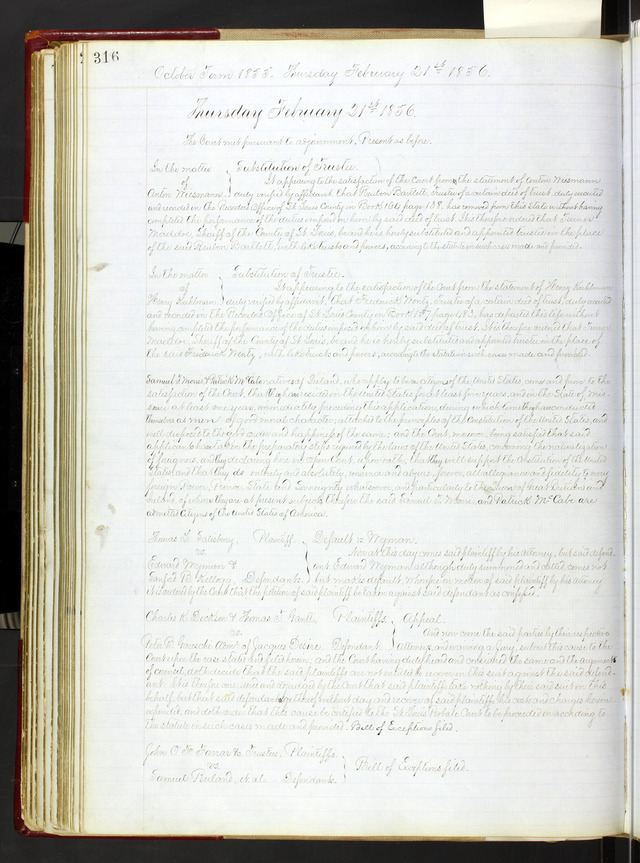 316
October Term 1855. Thursday February 21st 1856.
Thursday February 21st 1856.
The Court met pursuant to adjournment, Present as before.
In the matter } Substitution of Trustee.
of It appearing to the satisfaction of the Court from the statement of Anton Wismann
Anton Wismann. duly verified by affidavit that Reuben Bartlett, Trustee of a certain deed of trust, duly executed
and recorded in the Recorders Office of St Louis County in Book page 138. has removed from this State without having
completed the performance of the duties imposed on him by said deed of trust. It is therefore ordered that James
Maddox, Sheriff of the County of St Louis, be and he is hereby substituted and appointed trustee in the place
of the said Reuben Bartlett, with like trusts and powers, according to the statute in such case made and provided.
In the matter } Substitution of Trustee.
of It appearing to the satisfaction of the Court from the statement of Henry Kuhlmann
Henry Kuhlmann. duly verified by affidavit, that Frederick Wonty, Trustee of a certain deed of trust, duly executed
and recorded in the Recorders Office of St Louis County in Book page 43, has departed this life without
having completed the performance of the duties imposed on him by said deed of trust. It is therefore ordered that James
Maddox, Sheriff of the County of St Louis, be and he is hereby substituted and appointed trustee in the place of
the said Frederick Wonty, with like trusts and powers, according to the statute in such case made and provided.
Samuel S Moore & Patrick McCabe natives of Ireland, who apply to be citizens of the United States come and prove to the
satisfaction of the Court, that they have resided in the United States for at least five years, and in the State of Mis-
souri at least one year, immediately preceding this application, during which time they have conducted
themselves as men of good moral character, attached to the principles of the Constitution of the United States, and
well disposed to the good order and happiness of the same; and the Court, moreover, being satisfied that said
applicants have taken the preparatory steps required by the laws of the United States concerning the naturalization
of foreigners and they declare here in open Court, upon oath, that they will support the Constitution of the United
States and that they do entirely and absolutely, renounce and abjure forever, all allegiance and fidelity to every
foreign power, Prince, State and Sovereignty whatsoever, and particularly to the Queen of Great Britain and
Ireland, of whom they are at present subjects. Therefore the said Samuel S. Moore, and Patrick McCabe are
admitted citizens of the United States of America.
Thomas T. Salisbury, Plaintiff } Default v. Wyman.
vs. Now at this day comes said plaintiff by his attorney, but said defend-
Edward Wyman & ant Edward Wyman, although duly summoned and called comes not
Sanford B. Kellogg, Defendants. but makes default. Wherefore on motion of said plaintiff by his Attorney
it is ordered by the Court that the petition of said plaintiff be taken against said defendant as confessed.
Charles K. Dickson & Thomas T. Gantt, Plaintiffs } Appeal.
vs. And now come the said parties by their respective
Peter R. Admr. of Jacques Desire, Defendant. Attorneys, and waiving a jury, submit this cause to the
Court upon the case stated and filed herein; and the Court having duly heard and considered the same and the arguments
of counsel, doth decide that the said plaintiffs are not entitled to recover in this suit against the said defend-
ant. It is therefore considered and adjudged by the Court that said plaintiffs take nothing by their said suit in this
behalf, but that said defendant go hence without day and recover of said plaintiffs his costs and charges herein
expended, and doth order that this cause be certified to the St Louis Probate Court to be proceeded in according to
the statute in such case made and provided. Bill of Exceptions filed.
John O'F. Farrar & Trustee, Plaintiffs
vs. } Bill of Exceptions filed.
Samuel et. al. Defendants.